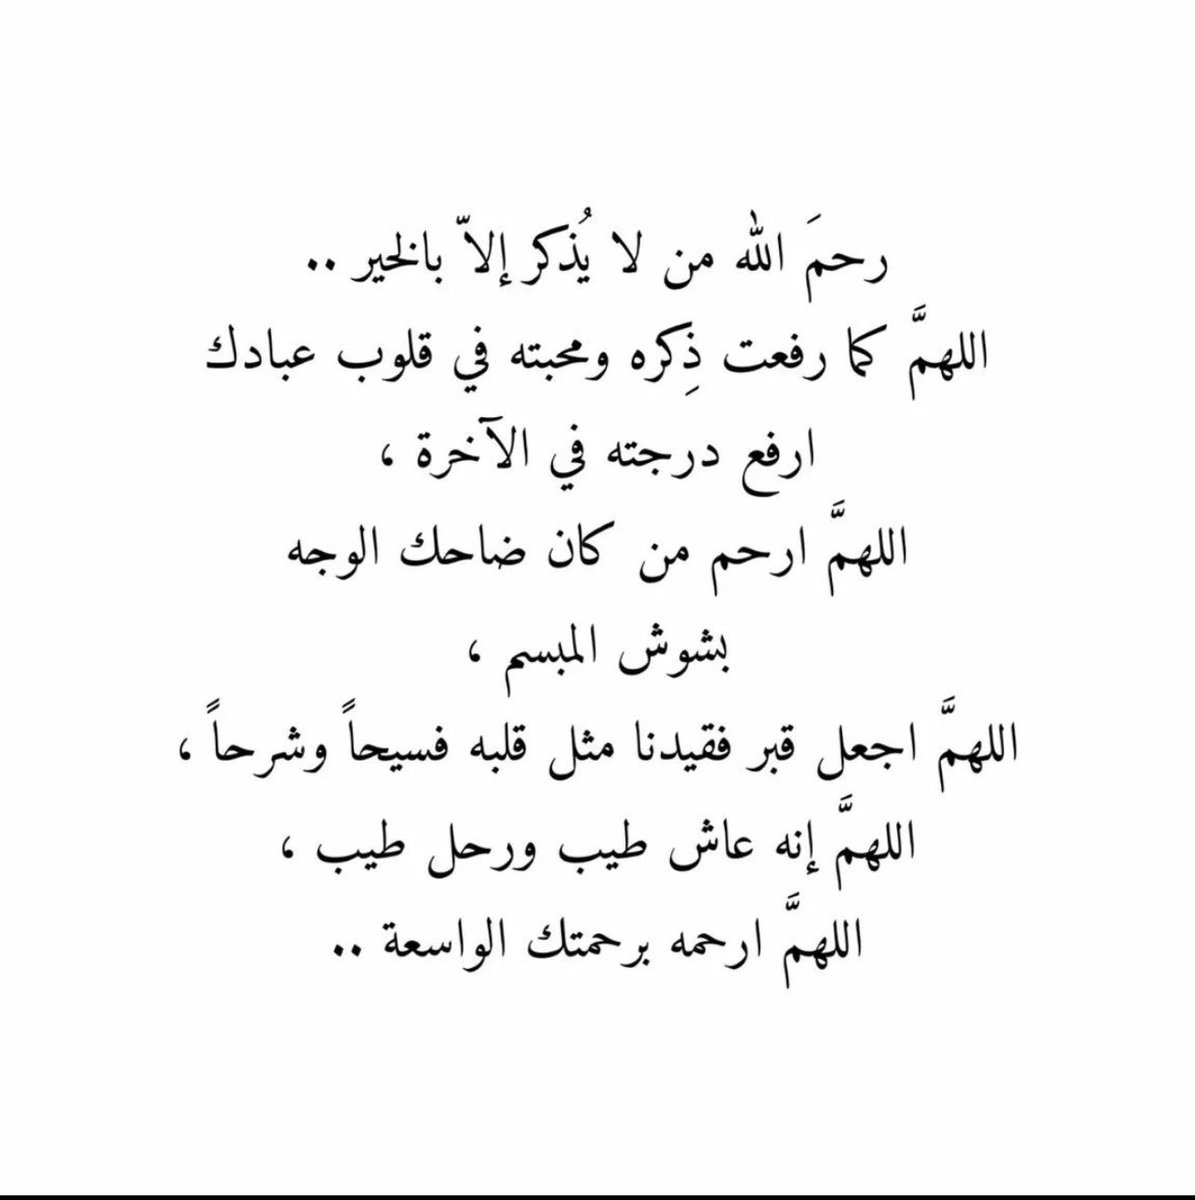 رحمَ الله من لا يُذكر إلاّ بالخير ..
اللهمَّ كما رفعت ذِكره ومحبته في قلوب عبادك
ارفع درجته في الآخرة ،
اللهمَّ ارحم من كان ضاحك الوجه
بشوش المبسم ،
اللهمَّ اجعل قبر فقيدنا مثل قلبه فسيحاً وشرحاً ،
اللهمَّ إنه عاش طيب ورحل طيب ،
اللهمَّ ارحمه برحمتك الواسعة ..